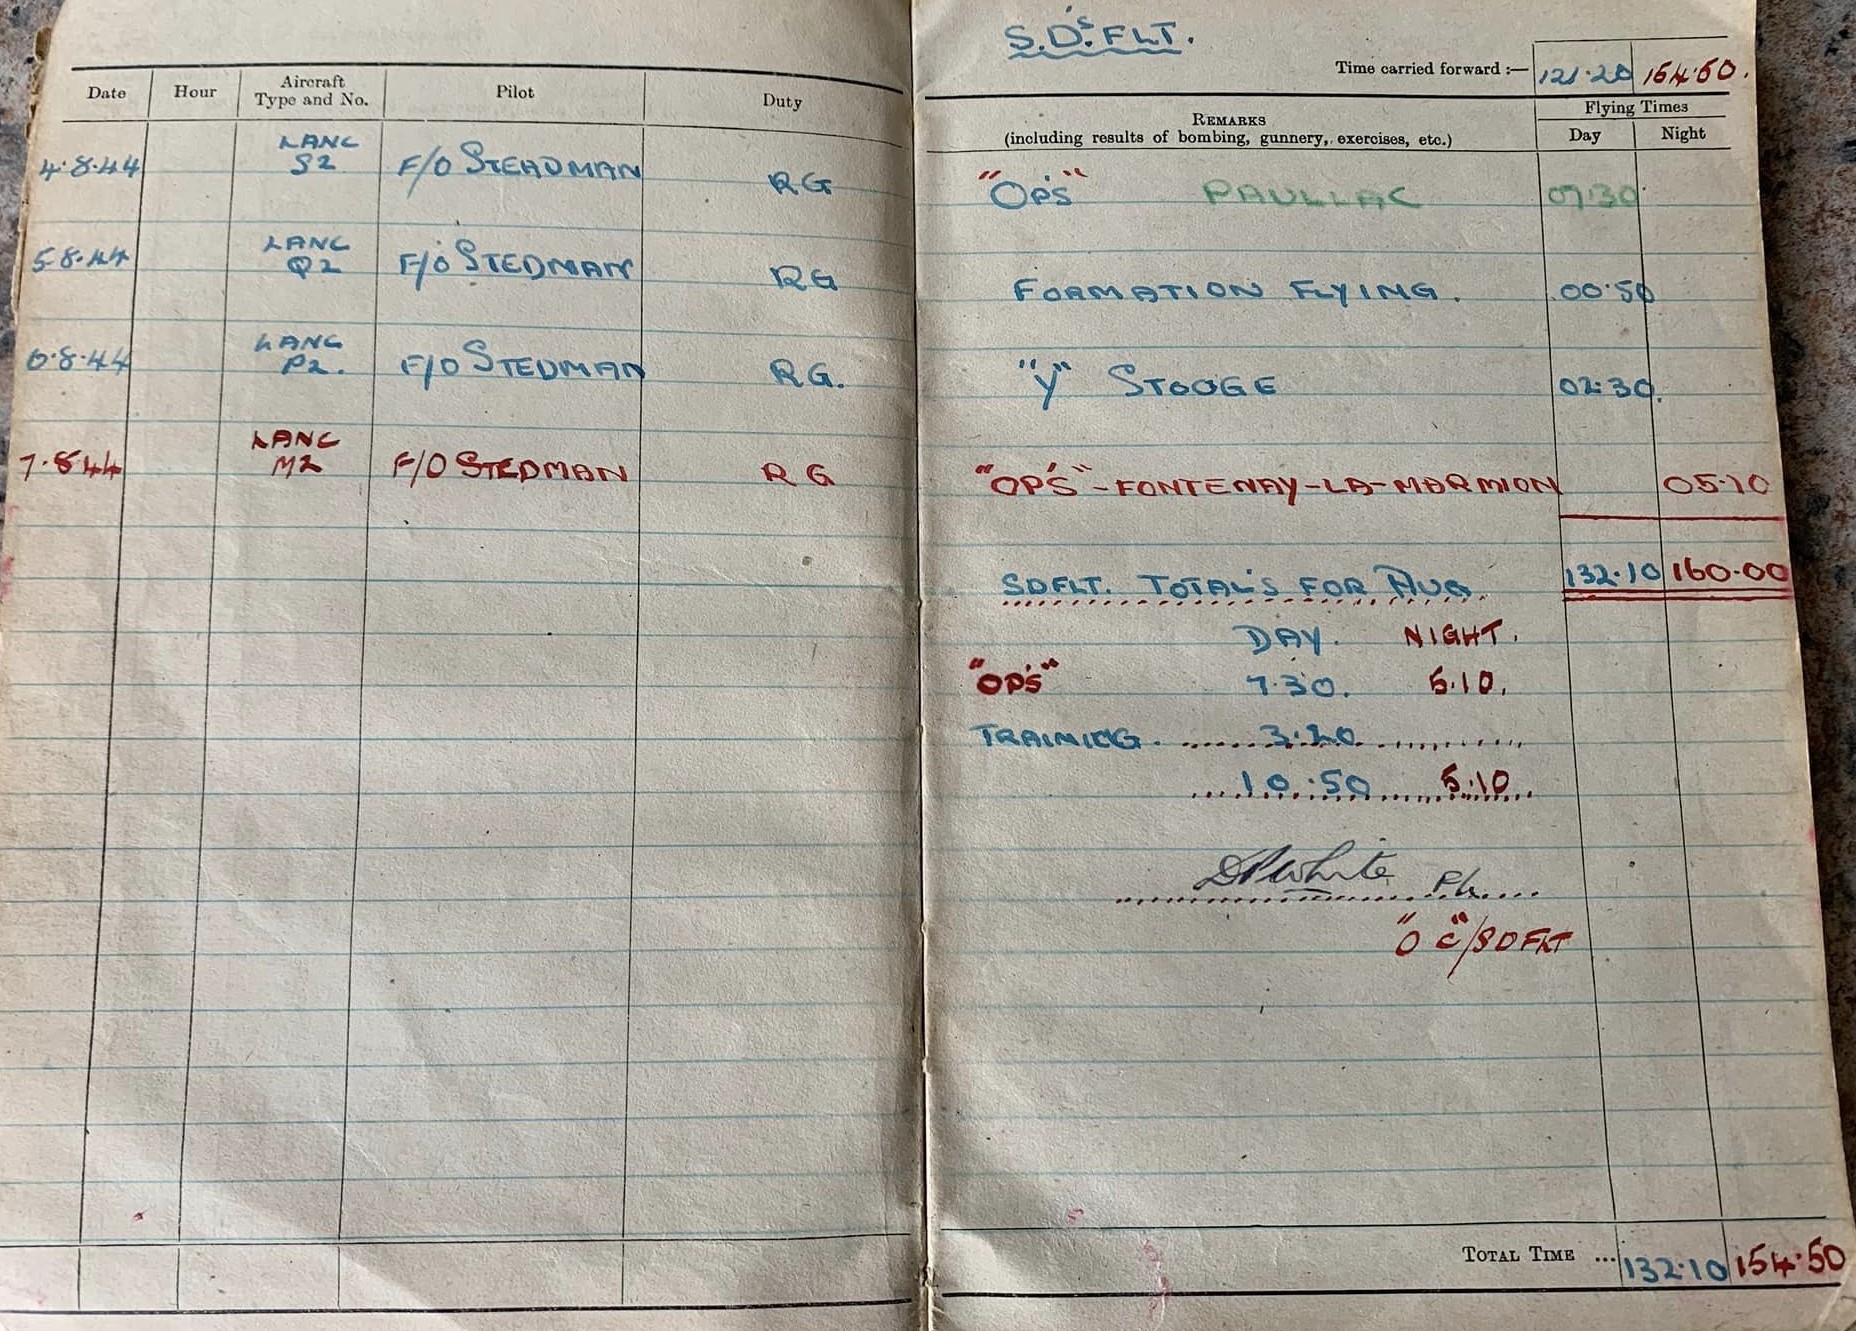 Date Hour Aircraft Type and No. Pilot Duty
4·8·44 LANC S2 F/O STEADMAN RG
5·8·44 LANC Q2 F/O STEDMAN RG
6·8·44 LANC P2. F/O STEDMAN RG.
7·8·44 LANC M2 F/O STEDMAN RG
S.D'S. FLT.
Time carried forward :— 121·20 154·50.
REMARKS
(including results of bombing, gunnery, exercises, etc.)
Flying Times
Day Night
"OP'S" PAULLAC 07·30
FORMATION FLYING. 00·50
"Y" STOOGE 02·30.
"OP'S" - FONTENAY-LA-MARMION 05·10
SDFLT. TOTAL'S FOR AUG 132·10 160·00
DAY. NIGHT.
"OP'S" 7·30. 5·10.
TRAINING. 3·20
10·50 5·10
D White F/L
"O C"/SDFLT
TOTAL TIME ... 132·10 154·50